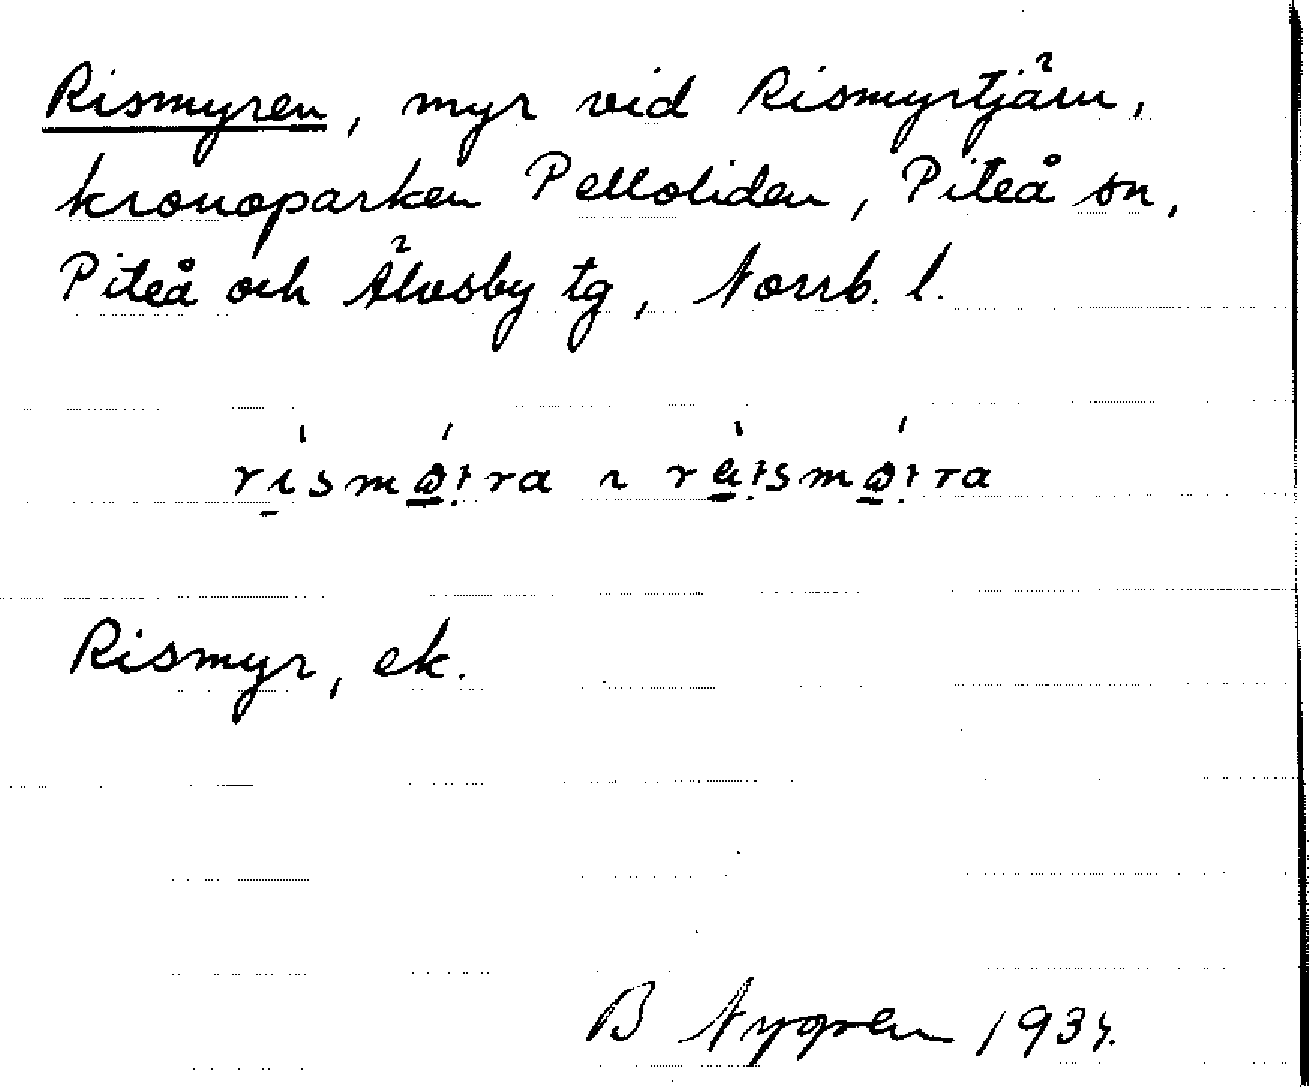 Rismyren, myr vid Rismyrtjärn,
kronoparken Pelloliden, Piteå sn,
Piteå och Älvsby tg, Norrb. l.
Rismyr, ek.
B Nygren 193